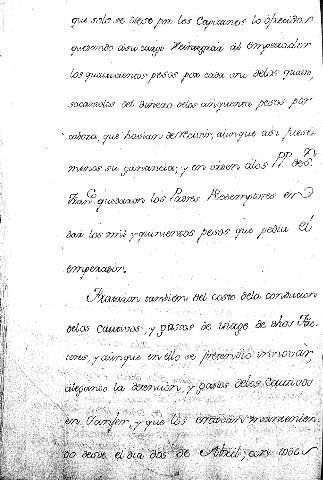 que solo se diese por los Capitanes lo ofrecido,
quedando a su cargo Reintegrar al emperador
los quatrocientos pesos por cada uno de los quatro,
sacandolos del dinero de los cinquenta pesos por
cabeza, que havian de recivir, aunque asi fuese
menos su ganancia; y en orden a los PP. de S.
Fran.co quedaron los Padres Redemptores en
dar los mil y quinientos pesos que pedia el
emperador.
Trataron tambien del costo de la conduccion
de los cautivos, y gastos de viage de dhos Pa-
dres, y aunque en ello se pretendio innovar,
alegando la detencion, y gastos de los cautivos
en Tanjer, y que los estavan mantenien-
do desde el dia dos de Abril, con todo